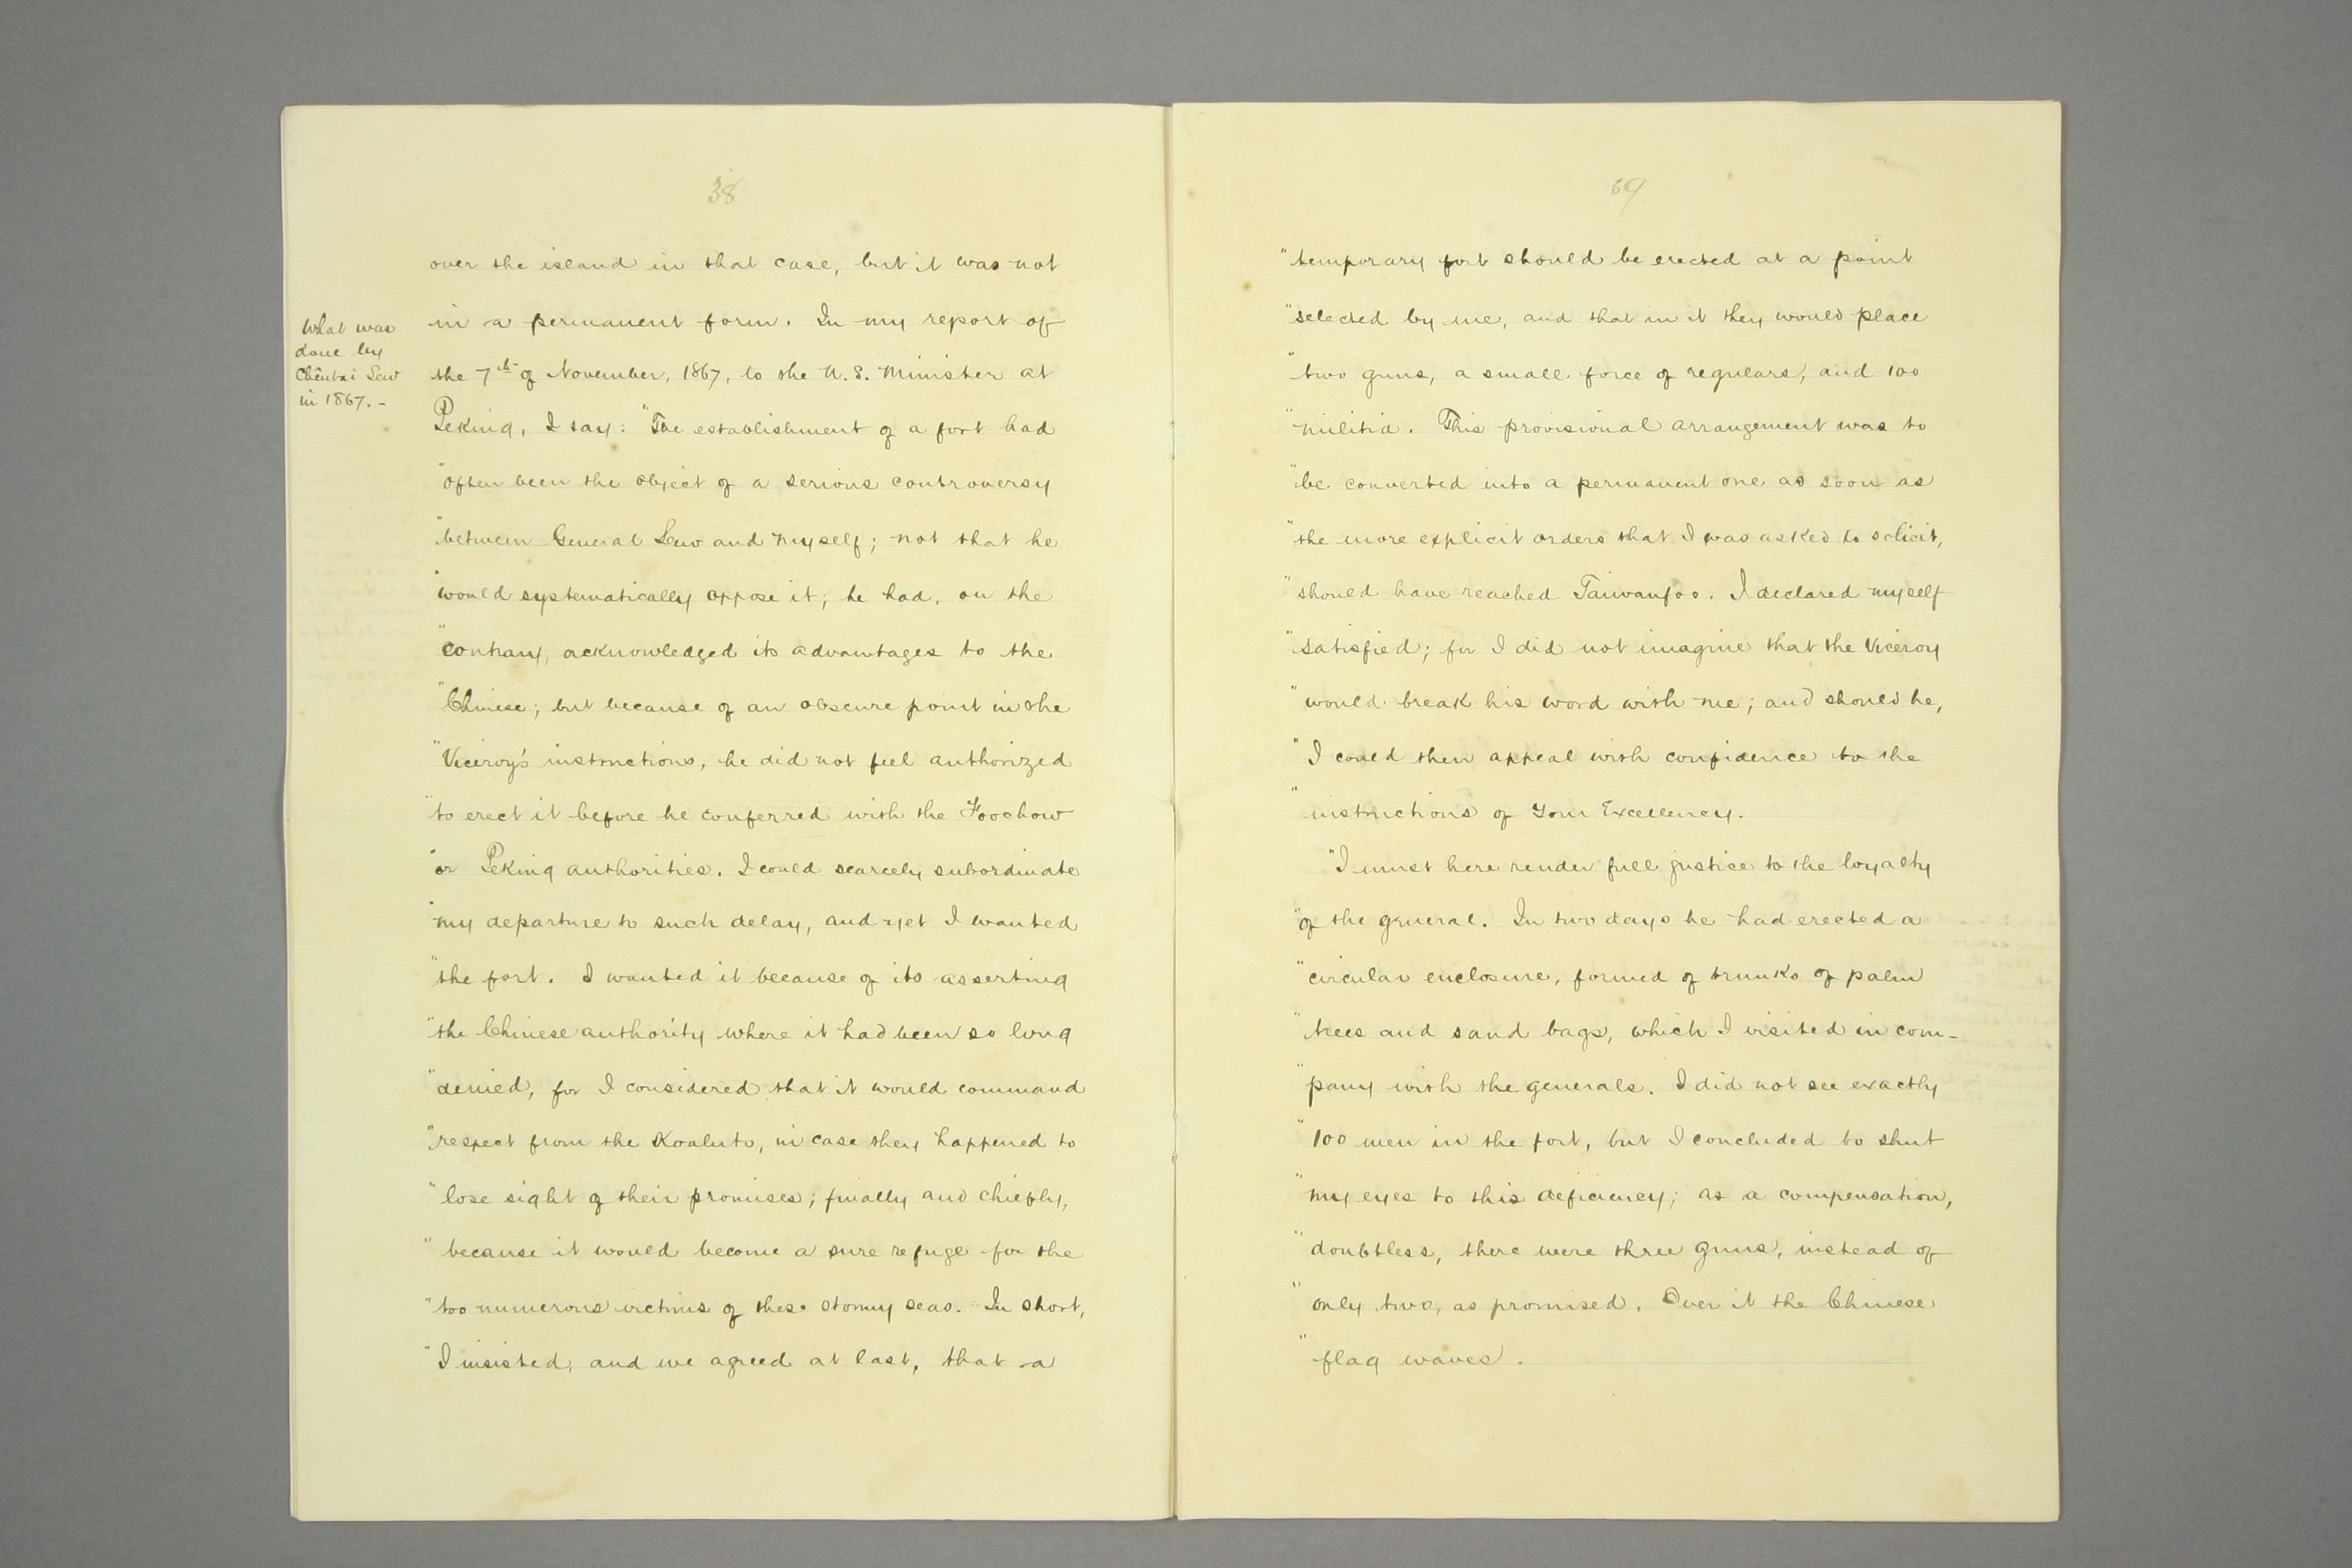 38
over the island in that case, but it was not
What was
done by
Chêntai Lew
in 1867.-
in a permanent form. In my report of
the 7th of November, 1867, to the U.S. Minister at
Peking, I say: "The establishment of a fort had
"often been the object of a serious controversy
"between General Lew and myself; not that he
"would systematically oppose it; he had, on the
"contrary, acknowledged its advantages to the
"Chinese; but because of an obscure point in the
"Viceroy's instructions, he did not feel authorized
"to erect it before he conferred with the Foochow
"or Peking authorities. I could scarcely subordinate
"my departure to such delay, and yet I wanted
"the fort. I wanted it because of its asserting
"the Chinese authority where it had been so long
"denied, for I considered that it would command
"respect from the Koaluts, in case they happened to
"lose sight of their promises; finally and chiefly,
"because it would become a sure refuge for the
"too numerous victims of these stormy seas. In short,
"I insisted, and we agreed at last, that a
39
"temporary fort should be erected at a point
"selected by me, and that in it they would place
"two guns, a small force of regulars, and 100
"militia. This provisional arrangement was to
"be converted into a permanent one as soon as
"the more explicit orders that I was asked to solicit,
"should have reached Taiwanfoo. I declared myself
"satisfied; for I did not imagine that the Viceroy
"would break his word with me; and should he,
"I could then appeal with confidence to the
"instructions of Your Excellency.
"I must here render full justice to the loyalty
"of the general. In two days he had erected a
"circular enclosure, formed of trunks of palm
"trees and sand bags, which I visited in com-
"pany with the generals. I did not see exactly
"100 men in the fort, but I concluded to shut
"my eyes to this deficiency; as a compensation,
"doubtless, there were three guns, instead of
"only two, as promised. Over it the Chinese
"flag waves.